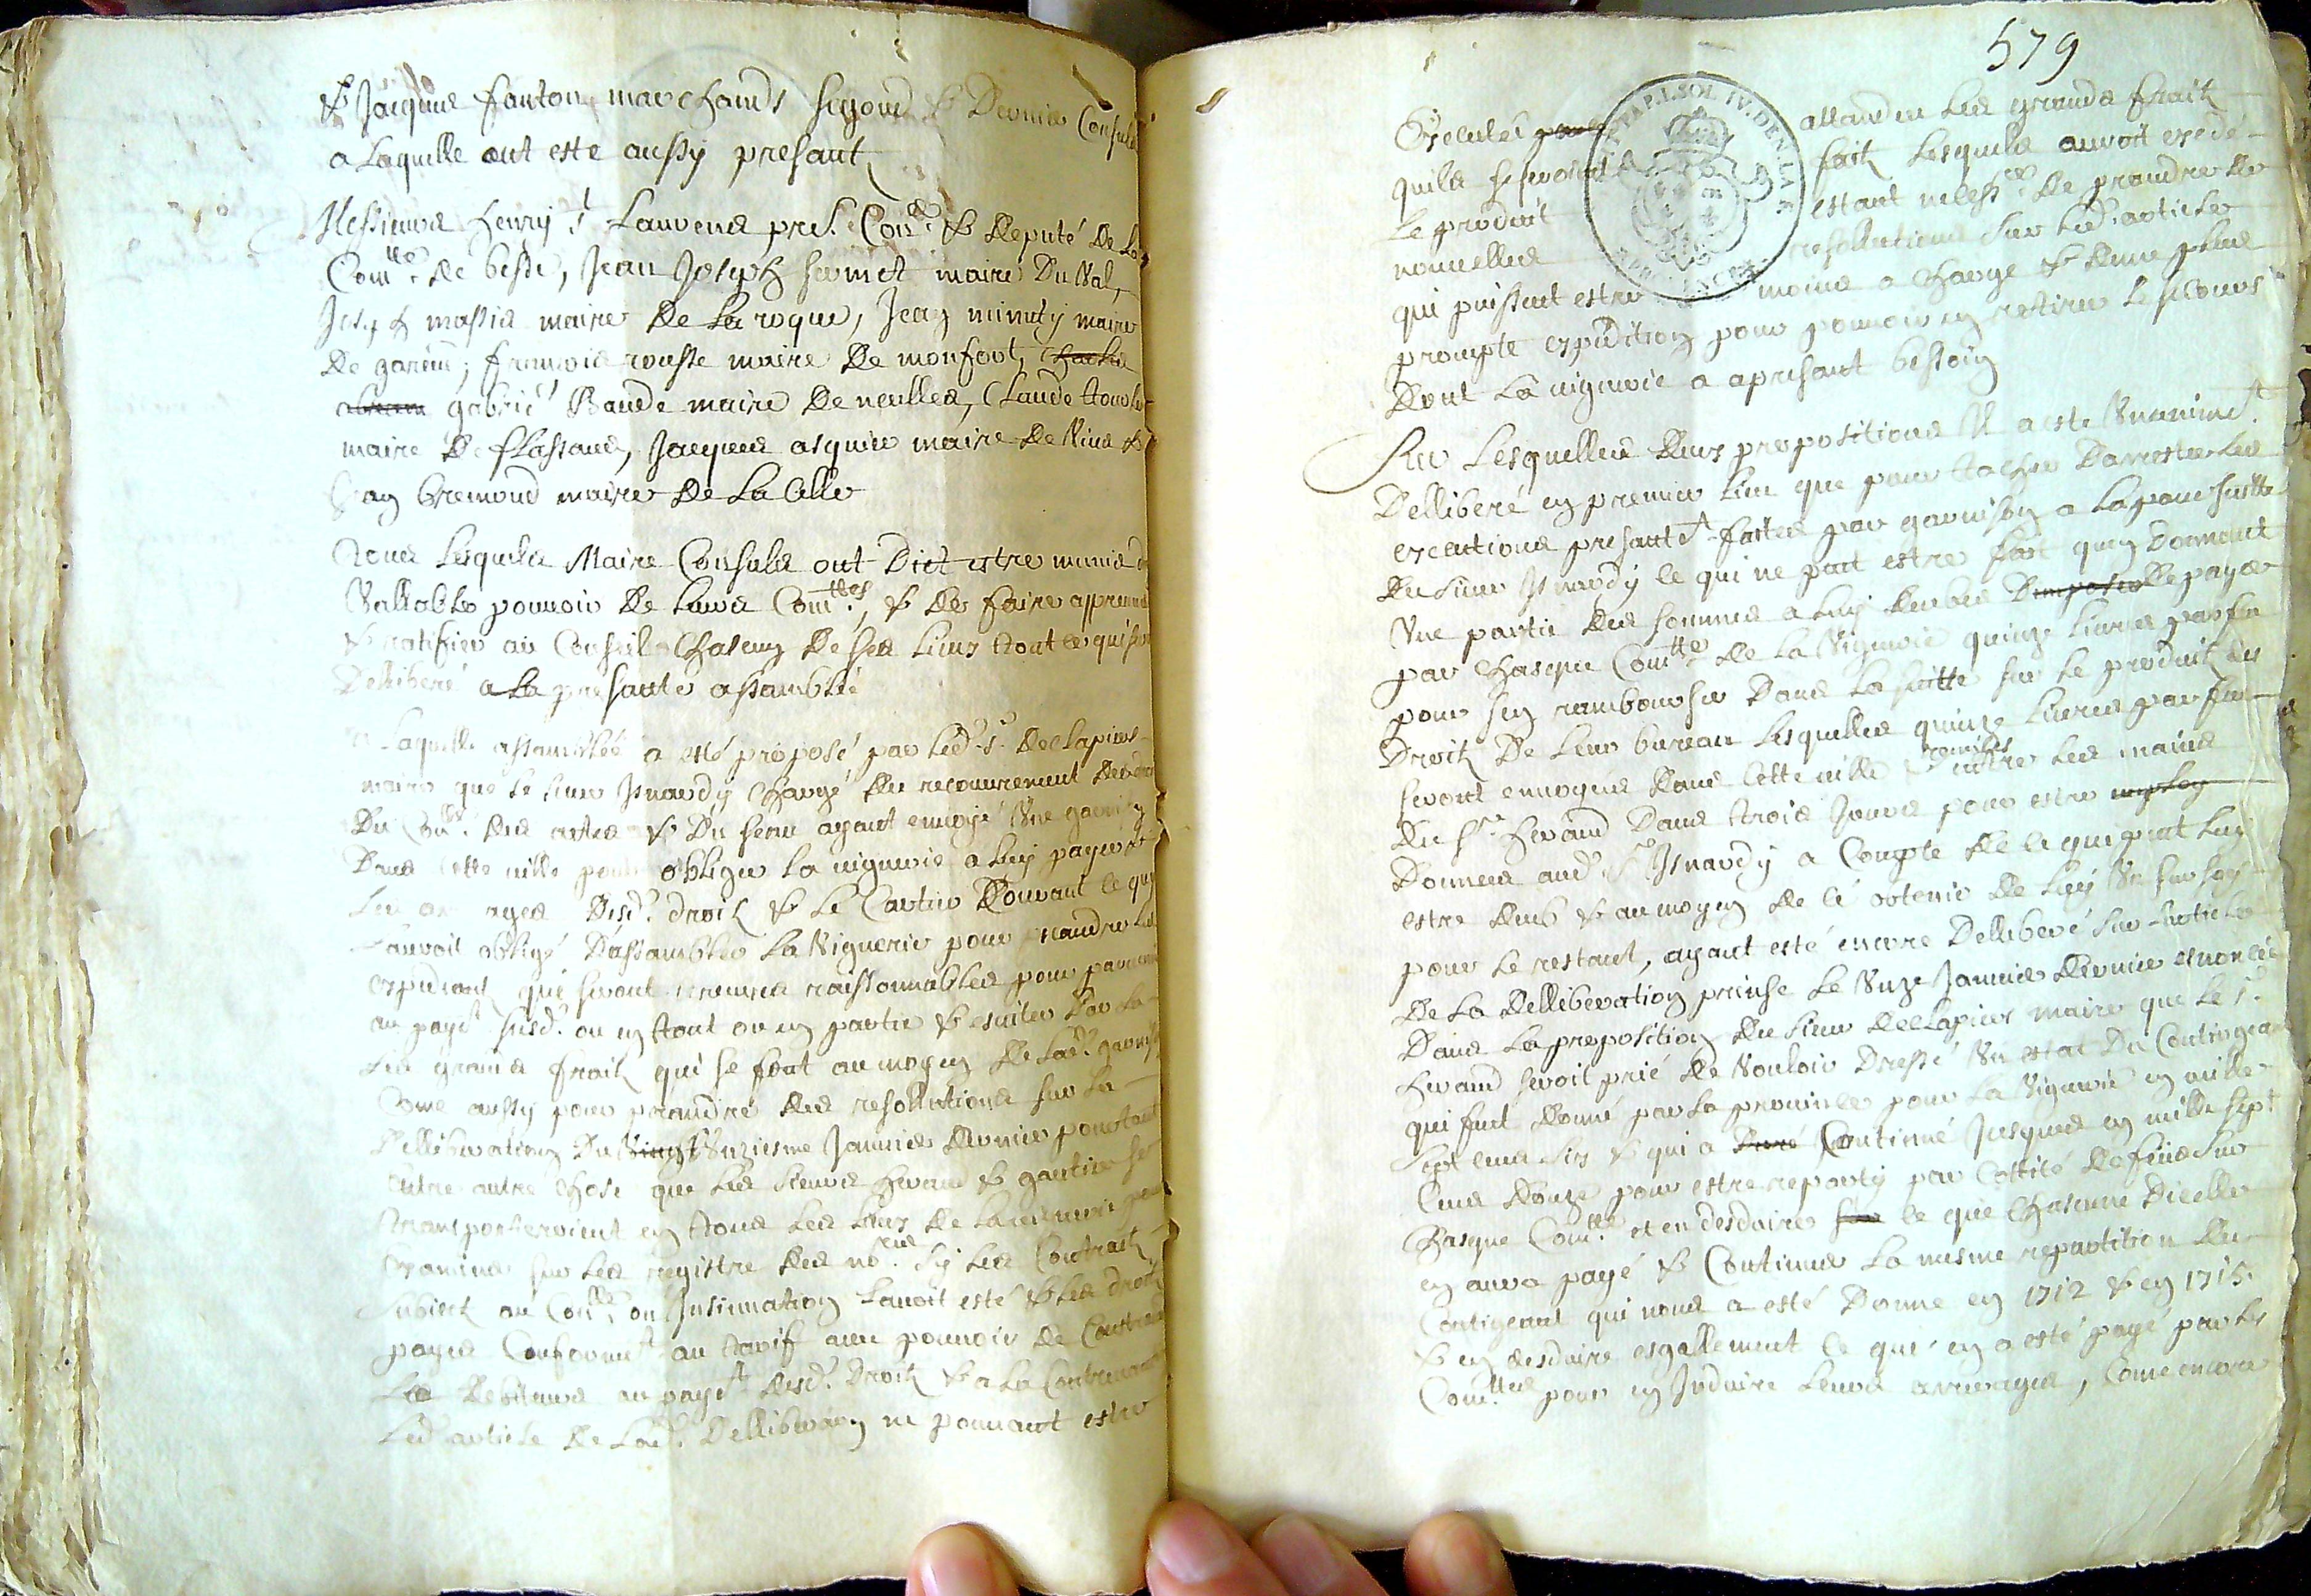 & Jacques fanton marchands segond & Dernier Consuls
a Laquelle ont este aussy presant
Messieurs henry St Laurens pres. Con.er & deputé de la
Com.tté de besse, Jean Joseph sermet maire Du Val,
Joseph massis maire de La roque, Jean minuty maire
de gareou; francois rousse maire de monfort, charles
gabriel Baude maire de neulles, Claude
maire de flassans, Jacques asquier maire de Vins &
Jean bremond maire de La Celle
Tous Lesquels Maire Consuls ont Dict estre munis de
Vallable pouvoir de Leurs Com.ttes, & de faire appreuver
& ratifier au Conseil Chascung de ses Lieux tout ce qui sera
Delliberé a La presante assamblée
a Laquelle assamblée a esté proposé par Led. s.r Declapiers
maire que Le sieur Isnardy Chargé du recouvrement des droits
Du Con.lle des actes & Du seau ayant envoyé Une garnison
Dans Cette ville pour obliger la viguerie a Luy payer
Les arrages desd. droits & Le Cartier Courant ce qui
L'auroit obligé D'assambler La Viguerie pour prandre Les
expediant que seront treuvés raisonnables pour parvenir
au paye.t susd. ou en tout ou en partie & esviter par La
Les grands fraix qui se font au moyen de Lad. garnison
Come aussy pour prandre des resollutions sur La
Delliberation Du Vingt Unziesme Janvier dernier portant
entre autre chose que Les sieurs heraud & gautier se
transporteroient en tous Les Lieux de La viguerie pour
examiner sur Les registre des no.res sy Les Contrats
subiects au Con.lle ou Insinuation L'avoit esté & Les droits
payés Conformem.t au tarif avec pouvoir de Contraindre
Les debiteurs au paye.t desd. Droits & a La Contrevantion
Led. article de Lad. Delliberaon ne pouvant estre
579
GNAP.I.SOL.IV.DEN.LA.F.
Executée attandeu Les grands fraix
quils se seroint fait Lesquels auroit exedé
Le produit estant necess.re de prandre de
nouvelles resollutions sur Led. article
qui puissent estre moins a charge & dune plus
prompte expedition pour pouvoir en retirer Le secours
dont La viguerie a apresant besoin
Sur Lesquelles deux propositions Il a este Unanime.t
Delliberé en premier Lieu que pour tacher Darrester Les
executions presante.t faites par garnison a La poursuitte
du sieur Isnardy ce qui ne peut estre fait quen donnant
Une partie des sommes a Luy deubes de payer
par Chasque Com.tté de La Viguerie quinze Livres par feu
pour sen rambourser Dans La suitte sur Le produit des
Droits De Leur bureau Lesquelles quinze Livres par feu
seront envoyées Dans Cette ville & remises entre Les mains
du s.r heraud Dans trois Jours pour estre employ
Donnees aud. s.r Isnardy a Compte de ce qui peut Luy
estre deub & au moyen de ce obtenir de Luy Un sursoy
pour Le restant, ayant esté encore Delliberé sur Larticle
de La Delliberation prinse Le Unze Janvier dernier enoncée
Dans La proposition du sieur declapiers maire que Le s.r
heraud seroit prié de Vouloir Dressé Un estat Du Contingeant
qui fut donné par La province pour La Viguerie en mille
sept cens six & qui a duré Continué Jusques en mille sept
Cens Douze pour estre reparty par Cottité de feus sur
Chasque Com.tté et en desduire ce que Chascune Dicelles
en aura payé & Continuer La mesme repartition du
Contigeant qui nous a esté Donne en 1712 & en 1715.
& en desduire esgallement ce qui en a esté payé par Les
Com.ttés pour en Induire Leurs arrerages, Come encore